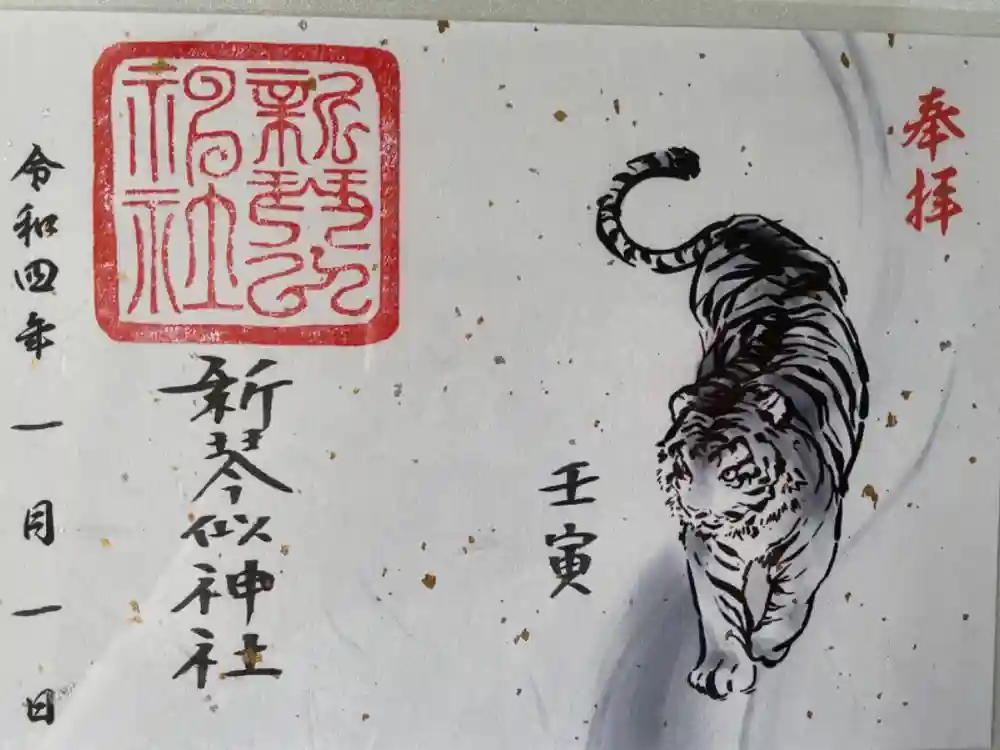 奉拝
壬寅
新琴似
神社
新琴似神社
令和四年一月一日